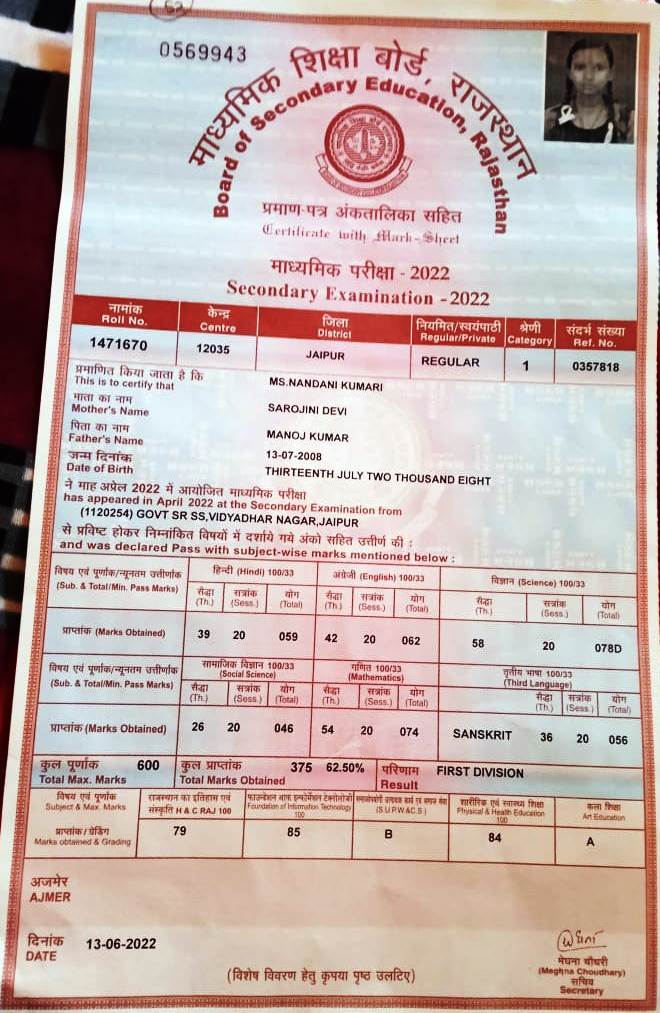 52
0569943
माध्यमिक शिक्षा बोर्ड, राजस्थान
Board of Secondary Education, Rajasthan
प्रमाण-पत्र अंकतालिका सहित
Certificate with Mark-Sheet
माध्यमिक परीक्षा - 2022
Secondary Examination - 2022
नामांक केन्द्र जिला नियमित/स्वयंपाठी श्रेणी संदर्भ संख्या
Roll No. Centre District Regular/Private Category Ref. No.
1471670 12035 JAIPUR REGULAR 1 0357818
प्रमाणित किया जाता है कि
This is to certify that MS.NANDANI KUMARI
माता का नाम
Mother's Name SAROJINI DEVI
पिता का नाम
Father's Name MANOJ KUMAR
जन्म दिनांक 13-07-2008
Date of Birth THIRTEENTH JULY TWO THOUSAND EIGHT
ने माह अप्रेल 2022 में आयोजित माध्यमिक परीक्षा
has appeared in April 2022 at the Secondary Examination from
(1120254) GOVT SR SS,VIDYADHAR NAGAR,JAIPUR
से प्रविष्ट होकर निम्नांकित विषयों में दर्शाये गये अंको सहित उत्तीर्ण की :
and was declared Pass with subject-wise marks mentioned below :
विषय एवं पूर्णांक/न्यूनतम उत्तीर्णांक हिन्दी (Hindi) 100/33 अंग्रेजी (English) 100/33 विज्ञान (Science) 100/33
(Sub. & Total/Min. Pass Marks) सैद्धा सत्रांक योग सैद्धा सत्रांक योग सैद्धा सत्रांक योग
(Th.) (Sess.) (Total) (Th.) (Sess.) (Total) (Th.) (Sess.) (Total)
प्राप्तांक (Marks Obtained) 39 20 059 42 20 062 58 20 078D
विषय एवं पूर्णांक/न्यूनतम उत्तीर्णांक सामाजिक विज्ञान 100/33 गणित 100/33 तृतीय भाषा 100/33
(Sub. & Total/Min. Pass Marks) (Social Science) (Mathematics) (Third Language)
सैद्धा सत्रांक योग सैद्धा सत्रांक योग सैद्धा सत्रांक योग
(Th.) (Sess.) (Total) (Th.) (Sess.) (Total) (Th.) (Sess.) (Total)
प्राप्तांक (Marks Obtained) 26 20 046 54 20 074 SANSKRIT 36 20 056
कुल पूर्णांक 600 कुल प्राप्तांक 375 62.50% परिणाम FIRST DIVISION
Total Max. Marks Total Marks Obtained Result
विषय एवं पूर्णांक राजस्थान का इतिहास एवं फाउन्डेशन आफ इन्फोर्मेशन टेक्नोलोजी समाजोपयोगी उत्पादक कार्य एवं समाज सेवा शारीरिक एवं स्वास्थ्य शिक्षा कला शिक्षा
Subject & Max. Marks संस्कृति H & C RAJ 100 Foundation of Information Technology 100 (S.U.P.W.&C.S.) Physical & Health Education 100 Art Education
प्राप्तांक / ग्रेडिंग 79 85 B 84 A
Marks obtained & Grading
अजमेर
AJMER
दिनांक 13-06-2022
DATE
मेघना चौधरी
(Meghna Choudhary)
सचिव
Secretary
(विशेष विवरण हेतु कृपया पृष्ठ उलटिए)